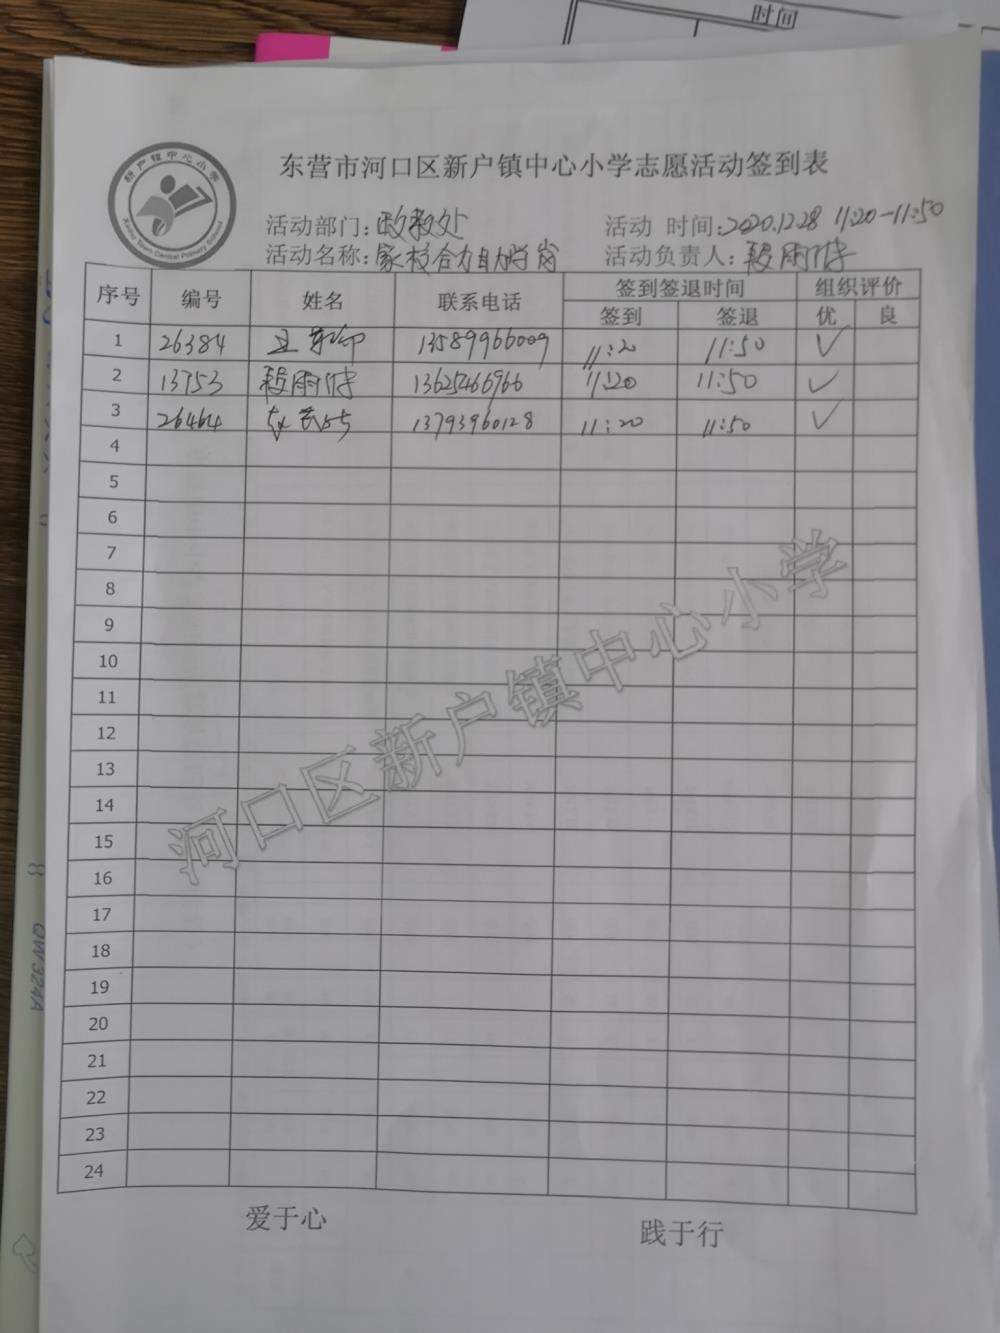 时间
新户镇中心小学
Xinhu Town Central Primary School
东营市河口区新户镇中心小学志愿活动签到表
活动部门：政教处 活动 时间：2020.12.28 11:20-11:50
活动名称：家校合力助学岗 活动负责人：段雨
序号 编号 姓名 联系电话 签到签退时间 组织评价
签到 签退 优 良
1 26384 13589966009 11:20 11:50 ✓
2 13753 段雨 13625466966 11:20 11:50 ✓
3 26464 13793960128 11:20 11:50 ✓
4
5
6
7
8
9
10
11
12
13
14
15
16
17
18
19
20
21
22
23
24
河口区新户镇中心小学
爱于心 践于行
QW324A